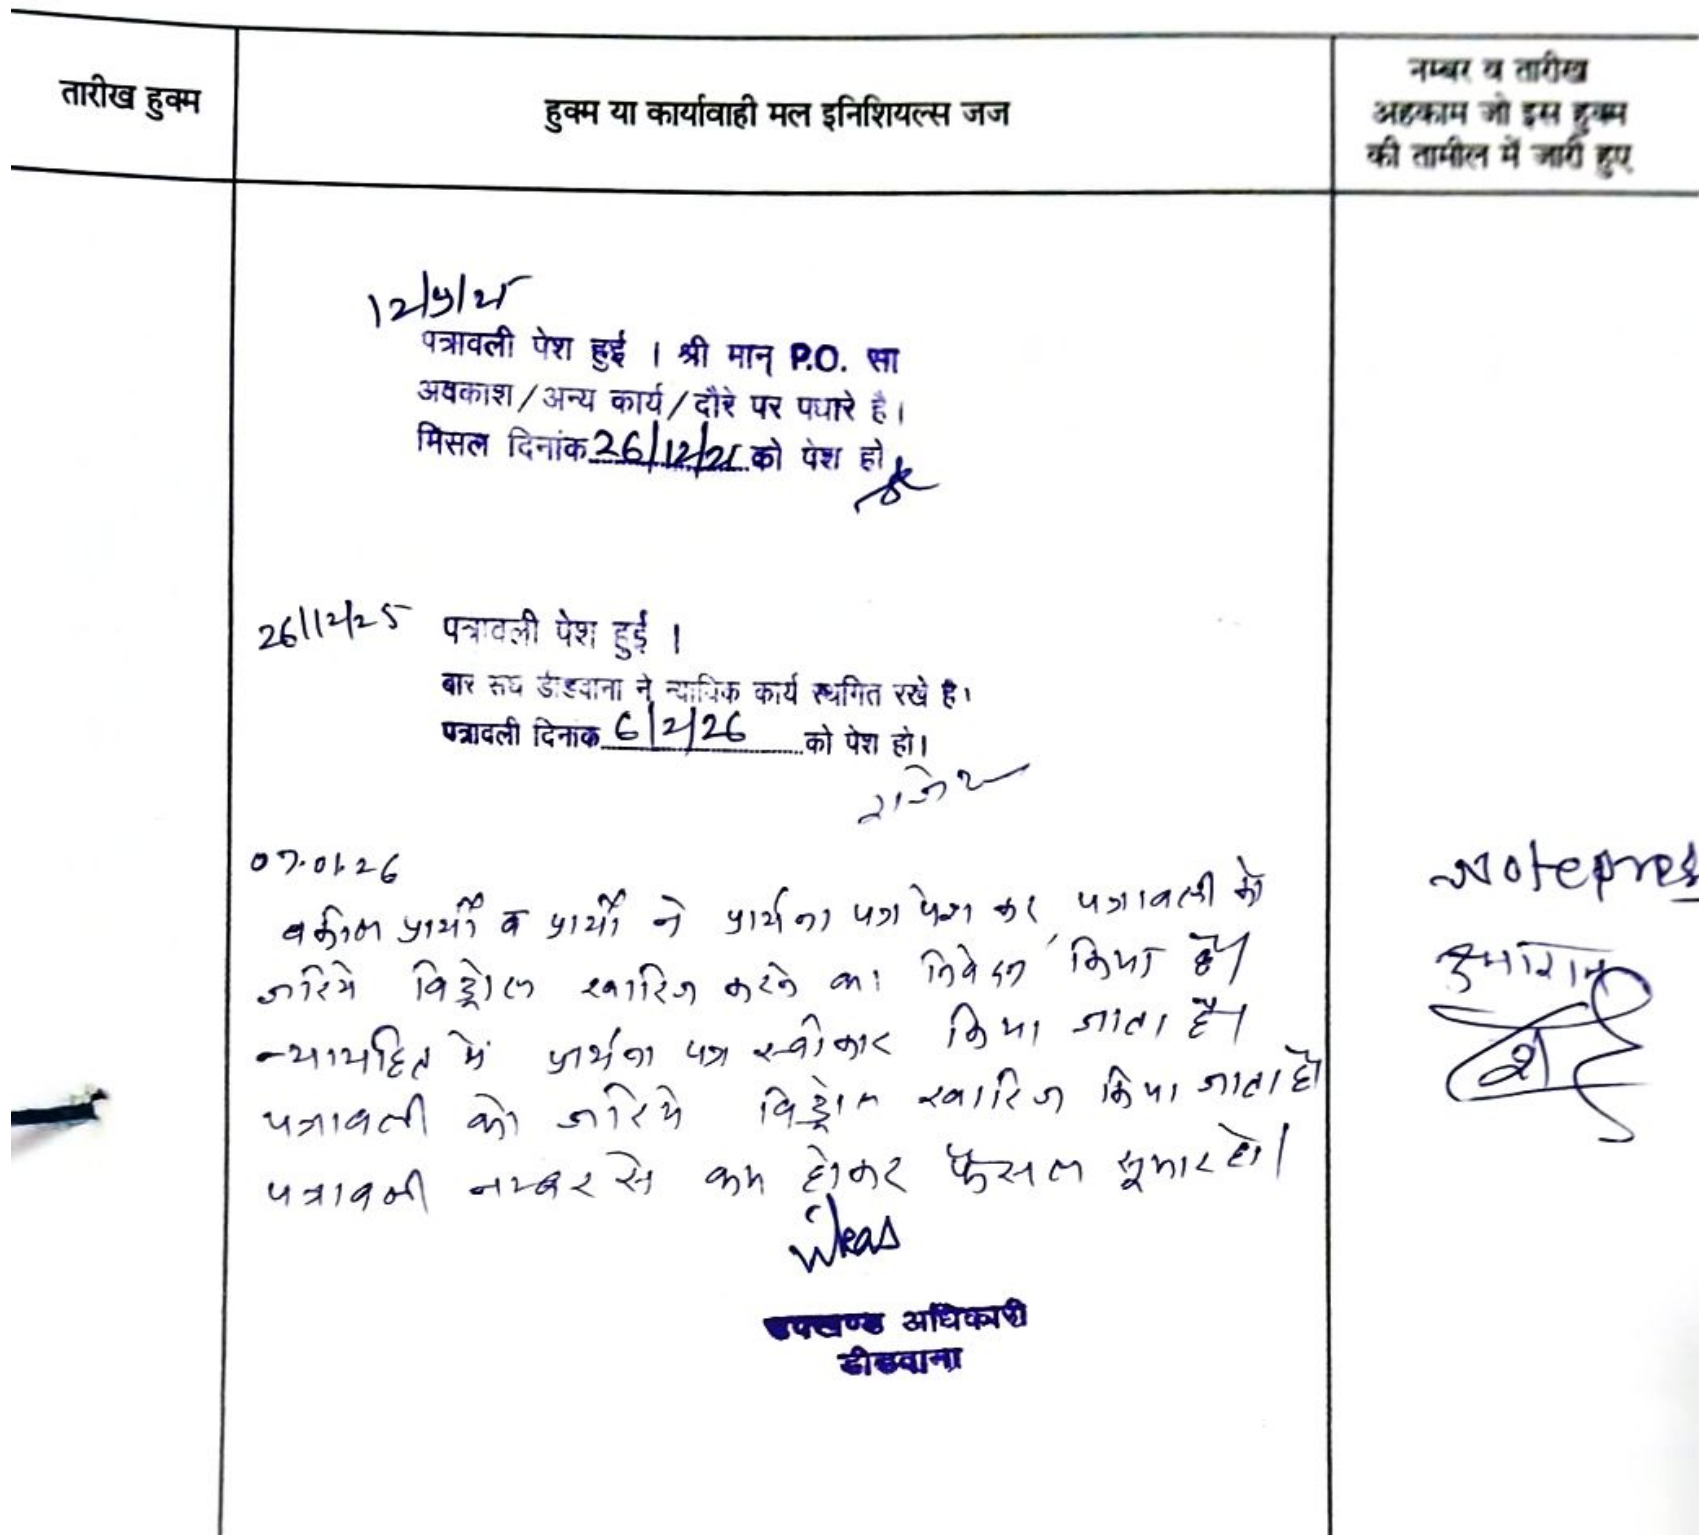 तारीख हुक्म
हुक्म या कार्यावाही मल इनिशियल्स जज
नम्बर व तारीख
अहकाम जो इस हुक्म
की तामील में जारी हुए
12/9/25
पत्रावली पेश हुई । श्री मान् P.O. सा
अवकाश/अन्य कार्य/दौरे पर पधारे है।
मिसल दिनांक 26/12/25 को पेश हो
26/12/25 पत्रावली पेश हुई ।
बार संघ डीडवाना ने न्यायिक कार्य स्थगित रखे है।
पत्रावली दिनांक 6/2/26 को पेश हो।
07.01.26
वकील प्रार्थी व प्रार्थी ने प्रार्थना पत्र पेश कर पत्रावली को
जरिये विड्रोल खारिज करने का निवेदन किया है।
न्यायहित में प्रार्थना पत्र स्वीकार किया जाता है।
पत्रावली को जरिये विड्रोल खारिज किया जाता है
पत्रावली नम्बर से कम होकर फैसल सूमार हो।
उपखण्ड अधिकारी
डीडवाना
Notepres